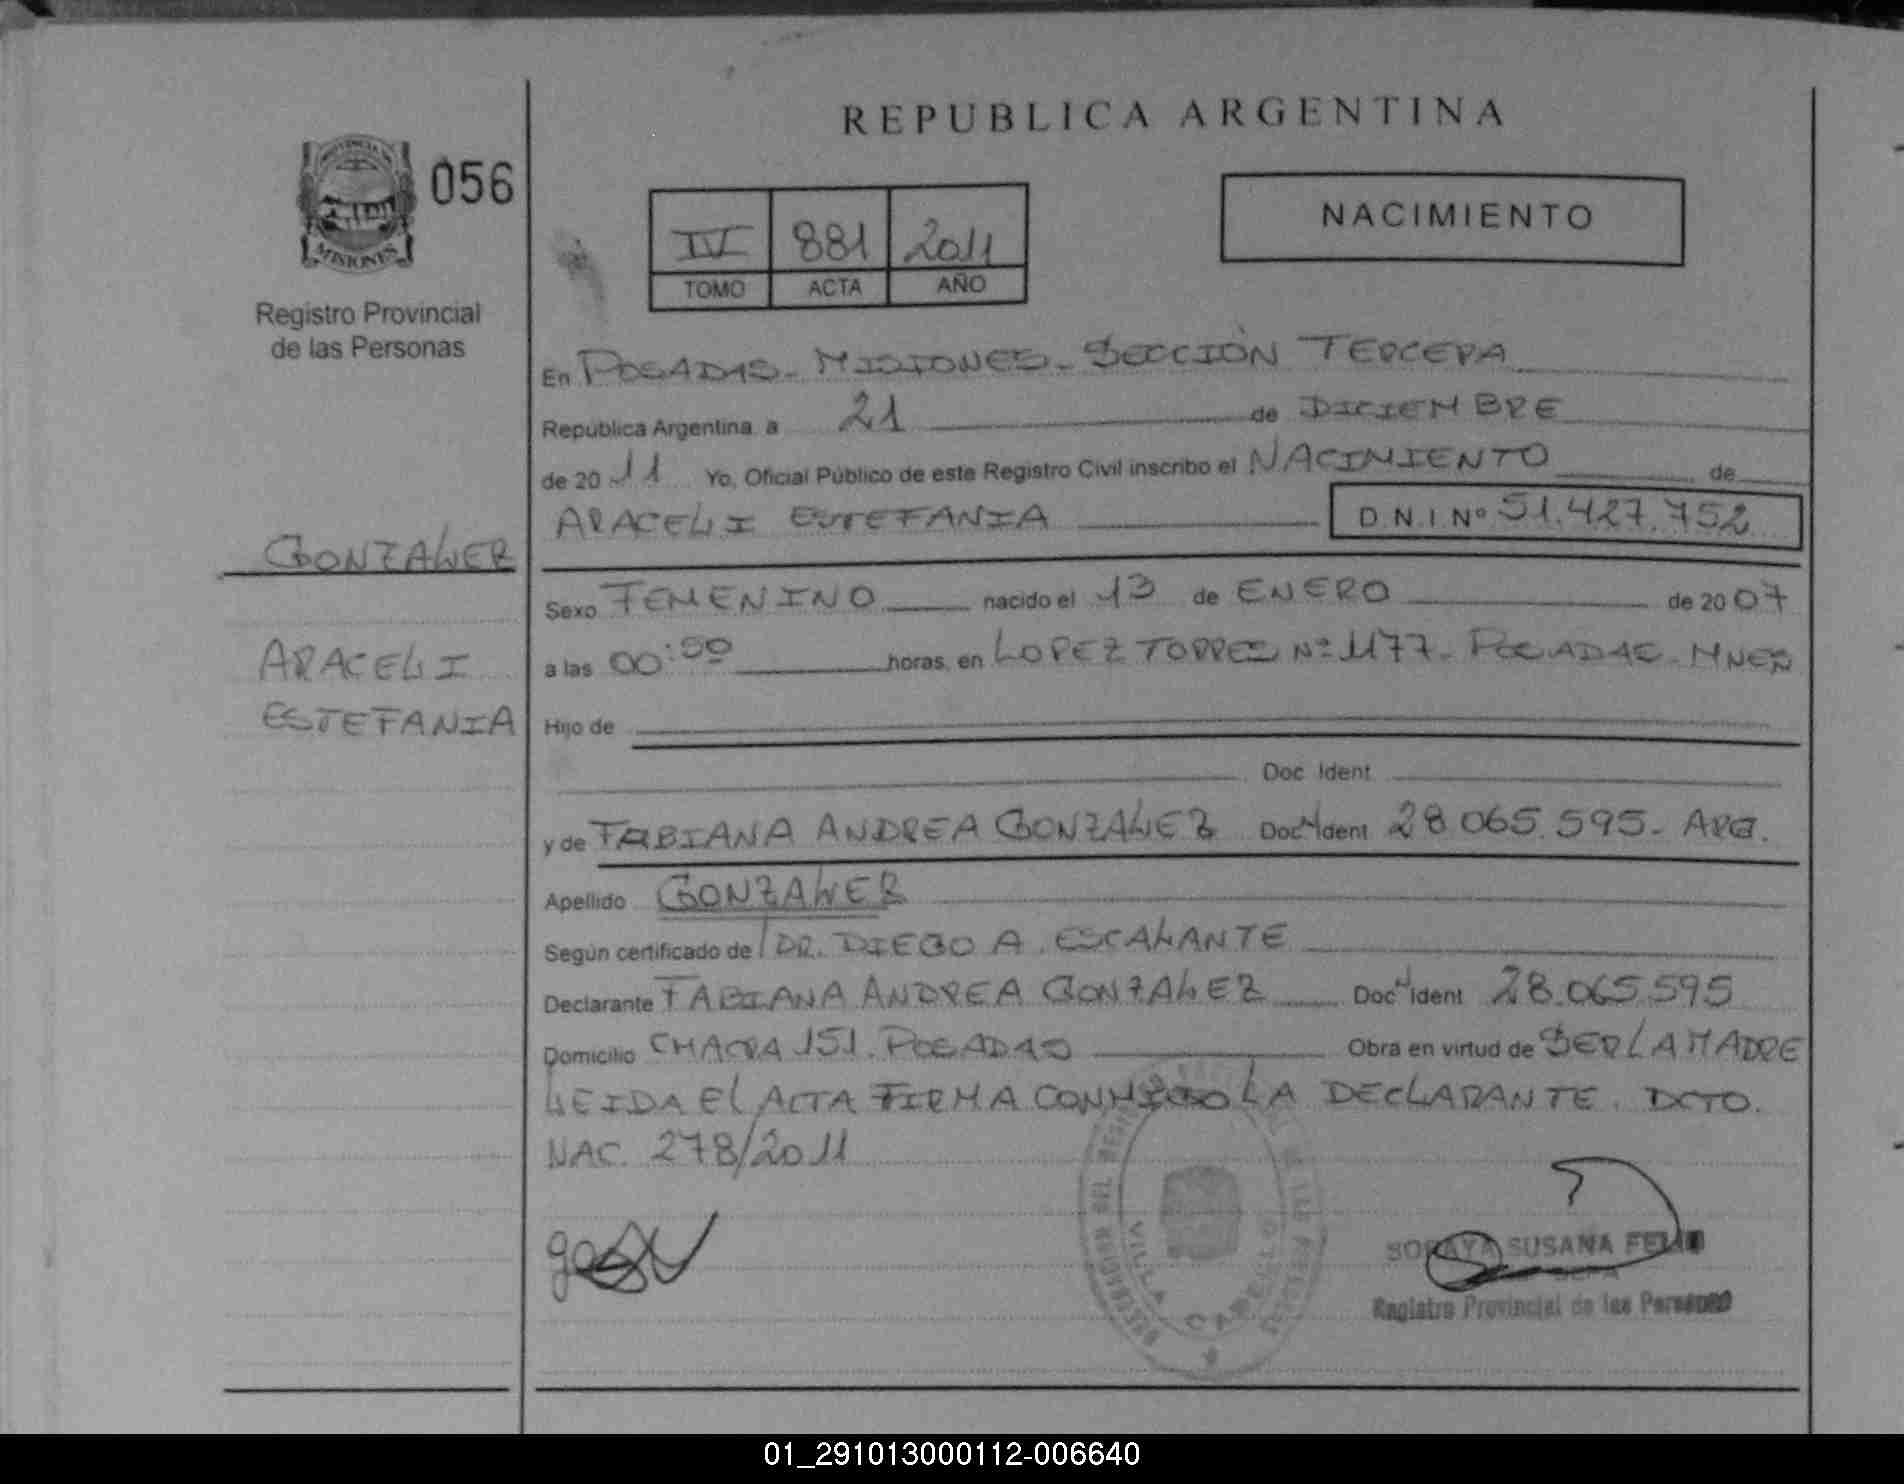 REPUBLICA ARGENTINA
PROVINCIA DE
MISIONES
056
Registro Provincial
de las Personas
IV 881 2011
TOMO ACTA AÑO
NACIMIENTO
En POSADAS - MISIONES - SECCIÓN TERCERA
Republica Argentina a 21 de DICIEMBRE
de 20 11 Yo, Oficial Público de este Registro Civil inscribo el NACIMIENTO de
ARACELI ESTEFANIA D.N.I Nº 51.427.752
GONZALEZ
ARACELI
ESTEFANIA
Sexo FEMENINO nacido el 13 de ENERO de 20 07
a las 00:50 horas, en LOPEZ TORRES Nº 1177 - POSADAS - MNES
Hijo de
Doc. Ident.
y de FABIANA ANDREA GONZALEZ Doc. Ident. 28.065.595 - ARG.
Apellido GONZALEZ
Según certificado de DR. DIEGO A. ESCALANTE
Declarante FABIANA ANDREA GONZALEZ Doc. Ident. 28.065.595
Domicilio CHACRA 151. POSADAS Obra en virtud de SER LA MADRE
LEIDA EL ACTA FIRMA CONMIGO LA DECLARANTE. DCTO.
NAC. 278/2011
VILLA CABELLO
SORAYA SUSANA
Registro Provincial de las Personas
01_291013000112-006640